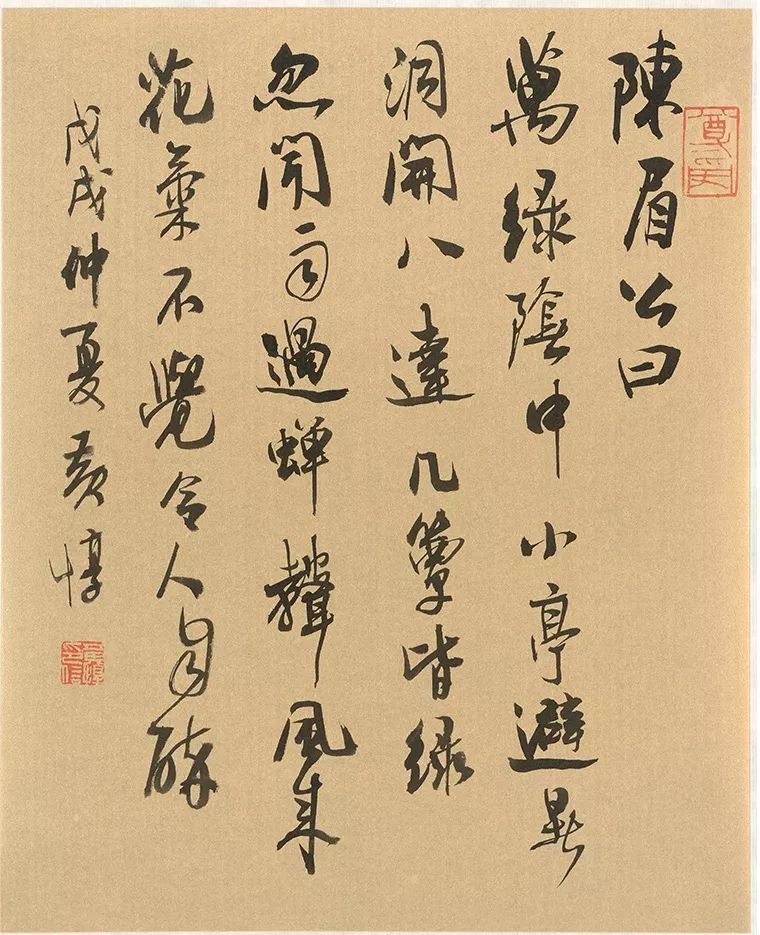 陳眉公曰
萬緑陰中小亭避暑
洞開八達几簟皆緑
忽聞雨過蝉聲風来
花氣不覺令人自醉
戊戌仲夏黄惇